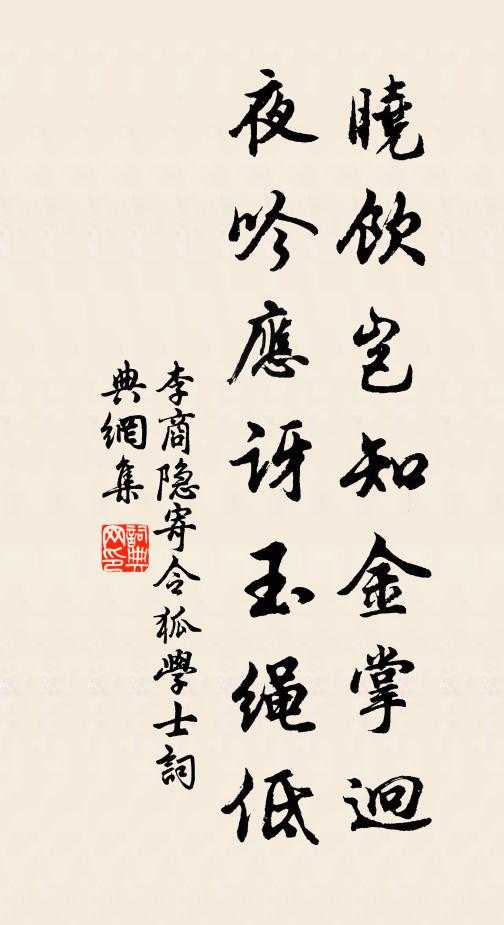 曉飲岂知金掌迥
夜吟應訝玉绳低
李商隐寄令狐學士詞
典網集
詞典
网印